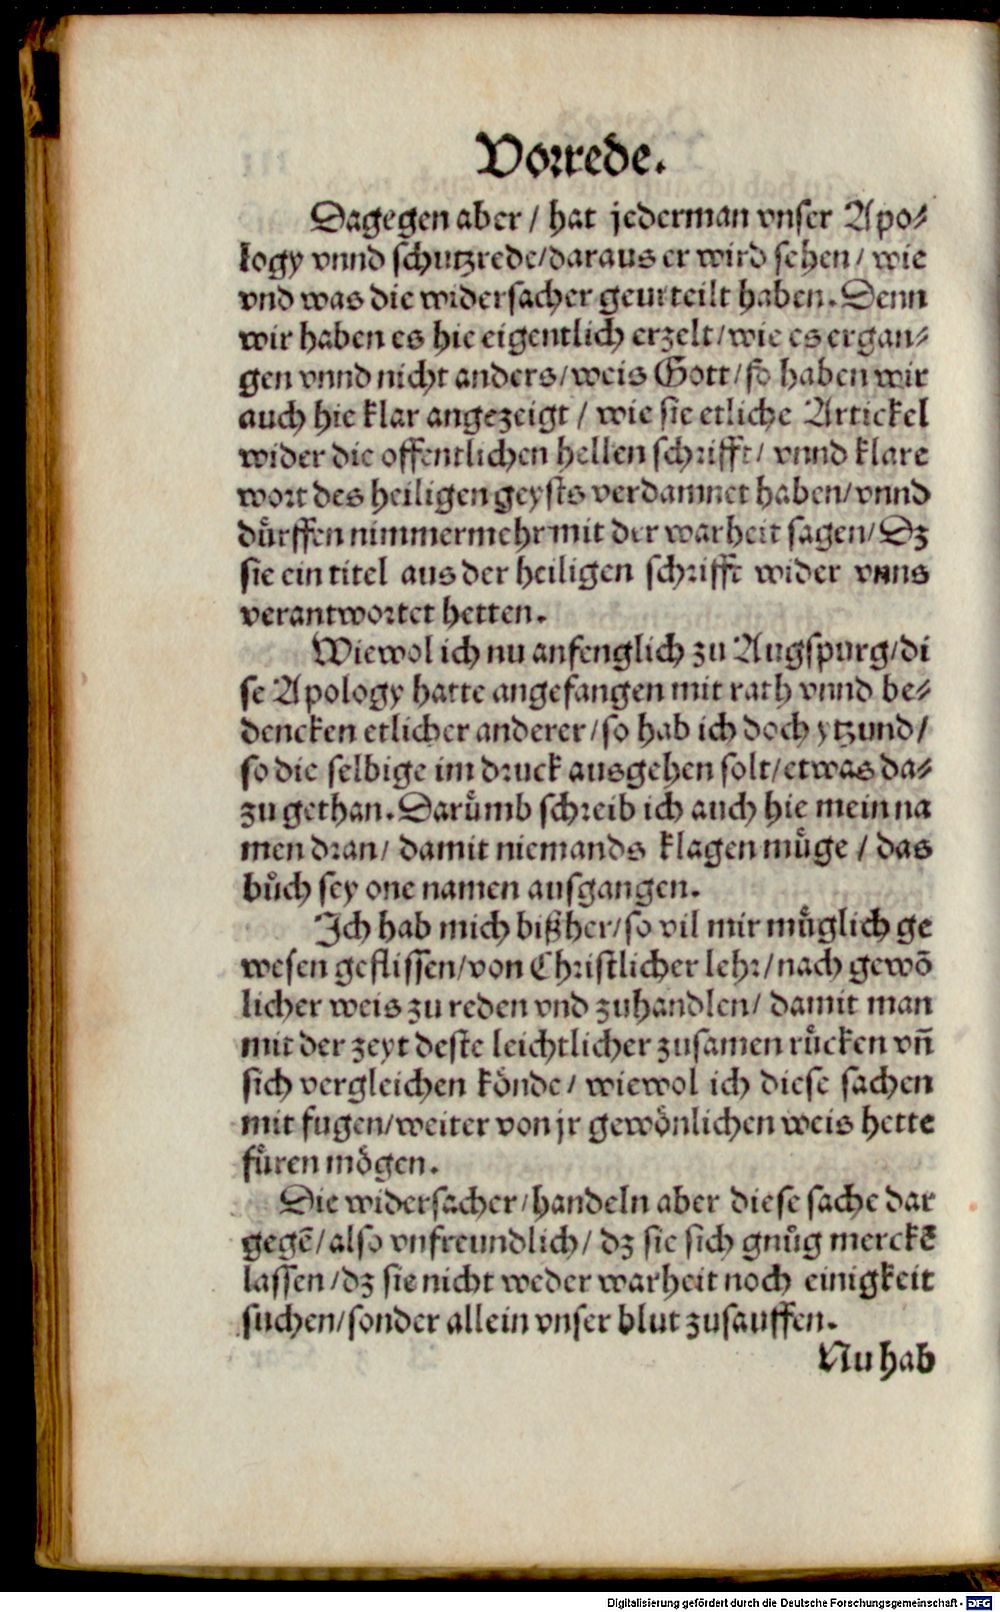 Vorrede.
Dagegen aber / hat jederman vnser Apo⸗
logy vnnd schutzrede/daraus er wird sehen/ wie
vnd was die widersacher geurteilt haben. Denn
wir haben es hie eigentlich erzelt/wie es ergan⸗
gen vnnd nicht anders/weis Gott/so haben wir
auch hie klar angezeigt / wie sie etliche Artickel
wider die offentlichen hellen schrifft/ vnnd klare
wort des heiligen geysts verdamnet haben/vnnd
duͤrffen nimmermehr mit der warheit sagen/Dz
sie ein titel aus der heiligen schrifft wider vnns
verantwortet hetten.
Wiewol ich nu anfenglich zu Augspurg/di
se Apology hatte angefangen mit rath vnnd be⸗
dencken etlicher anderer/so hab ich doch ytzund/
so die selbige im druck ausgehen solt/etwas da⸗
zu gethan. Daruͤmb schreib ich auch hie mein na
men dran/ damit niemands klagen muͤge / das
buͦch sey one namen ausgangen.
Ich hab mich bißher/so vil mir muͤglich ge
wesen geflissen/von Christlicher lehr/nach gewō
licher weis zu reden vnd zuhandlen/ damit man
mit der zeyt deste leichtlicher zusamen ruͤcken vn̄
sich vergleichen koͤnde/ wiewol ich diese sachen
mit fugen/weiter von jr gewoͤnlichen weis hette
fuͤren moͤgen.
Die widersacher/handeln aber diese sache dar
gegē/also vnfreundlich/ dz sie sich gnuͦg merckē
lassen/dz sie nicht weder warheit noch einigkeit
suchen/sonder allein vnser blut zusauffen.
Nu hab
Digitalisierung gefördert durch die Deutsche Forschungsgemeinschaft - DFG